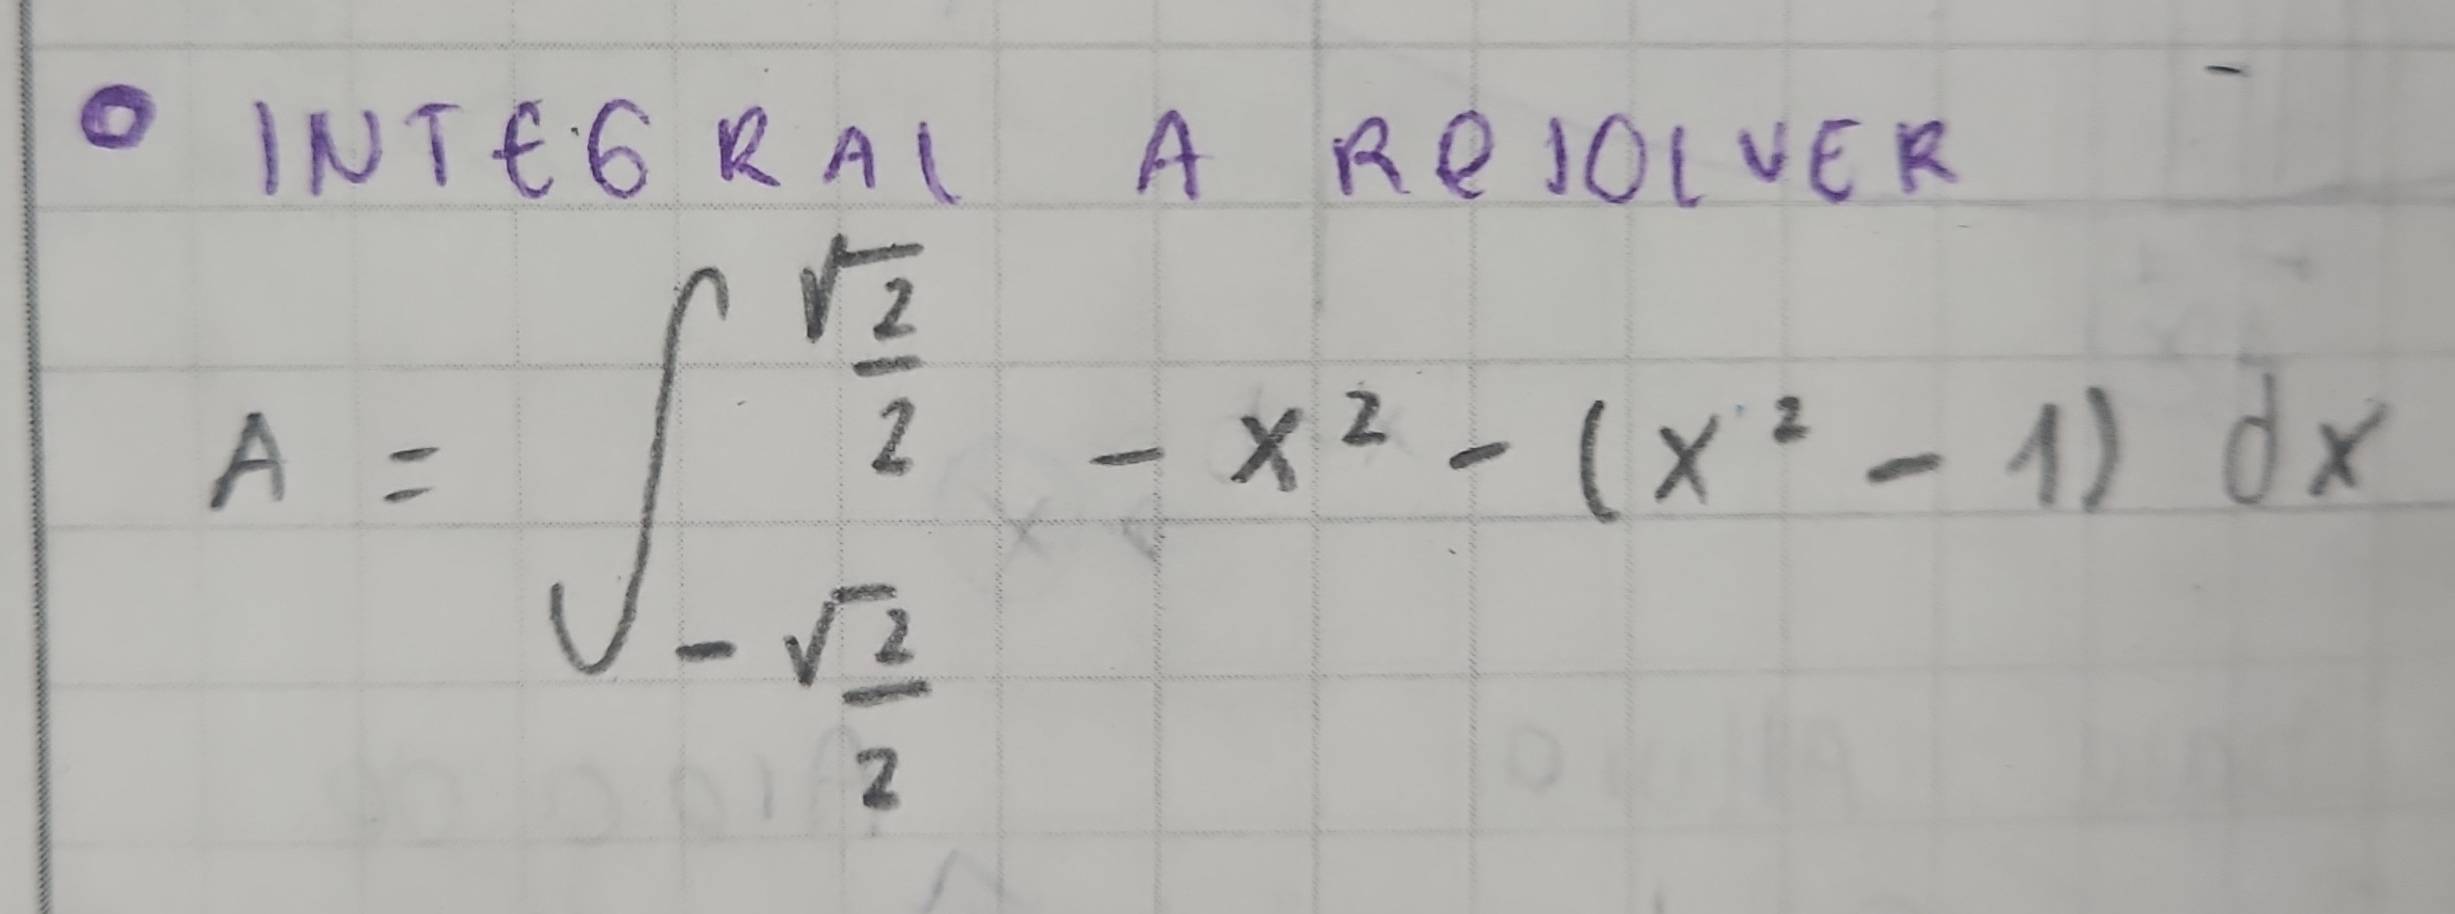 INTEGRAL A ReSOLVER
A = ∫_{-√2/2}^{√2/2} - x² - (x² - 1) dx